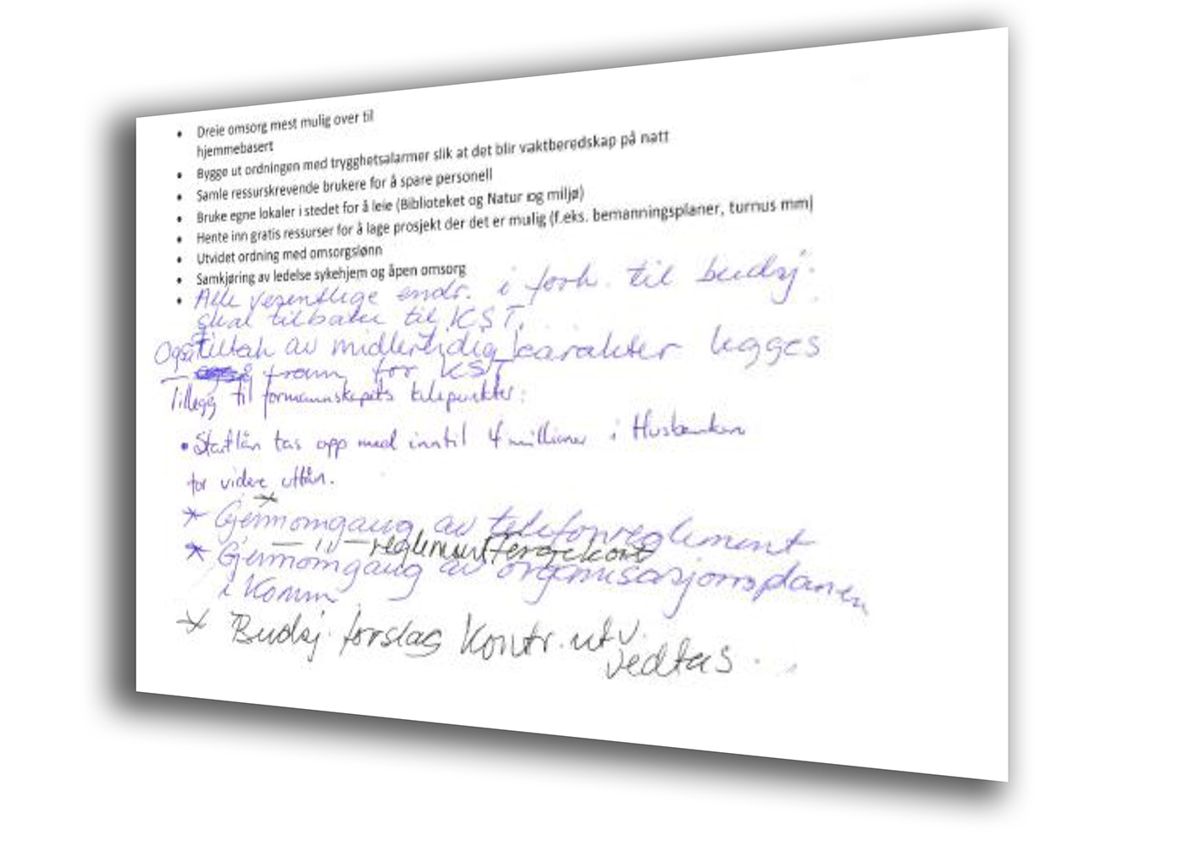 • Dreie omsorg mest mulig over til
hjemmebasert
• Bygge ut ordningen med trygghetsalarmer slik at det blir vaktberedskap på natt
• Samle ressurskrevende brukere for å spare personell
• Bruke egne lokaler i stedet for å leie (Biblioteket og Natur og miljø)
• Hente inn gratis ressurser for å lage prosjekt der det er mulig (f.eks. bemanningsplaner, turnus mm)
• Utvidet ordning med omsorgslønn
• Samkjøring av ledelse sykehjem og åpen omsorg
• Alle vesentlige endr. i forh. til budsj.
skal tilbake til KST.
Også tiltak av midlertidig karakter legges
fram for KST
Tillegg til formannskapets
• Startlån tas opp med inntil 4 millioner i Husbanken
for videre utlån.
* Gjennomgang av telefonreglement
— 11 — reglement fergekort
* Gjennomgang av organisasjonsplanen
i Komm
* Budsj. forslag Kontr. utv.
vedtas.